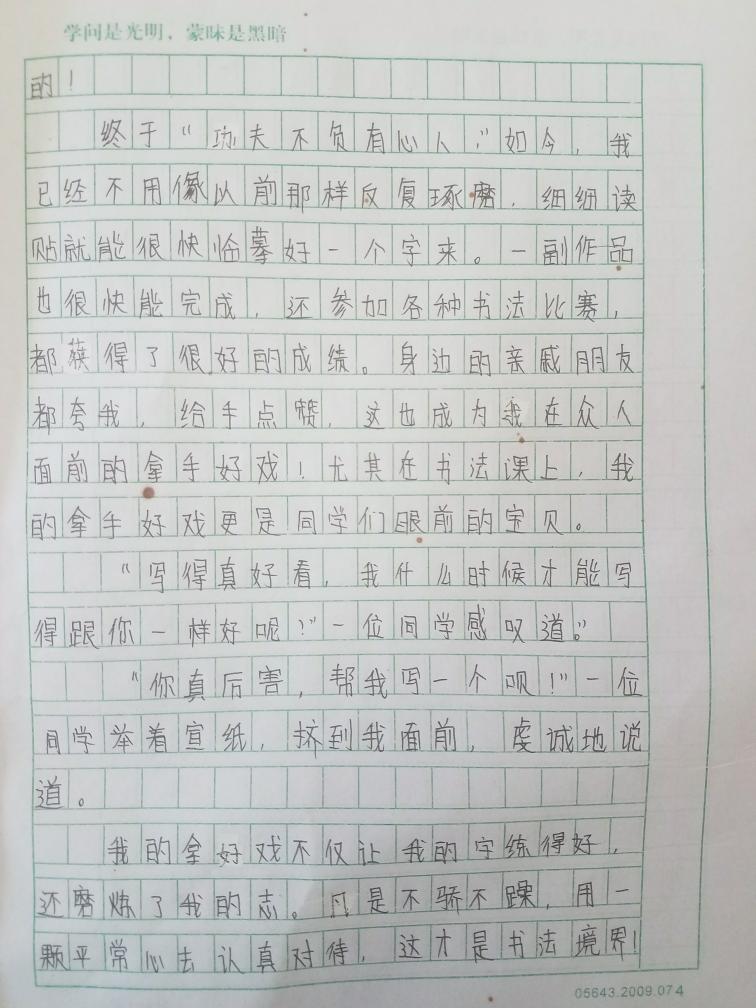 学问是光明，蒙昧是黑暗
的！
终于“功夫不负有心人，”如今，我
已经不用像以前那样反复琢磨，细细读
贴就能很快临摹好一个字来。一副作品
也很快能完成，还参加各种书法比赛，
都获得了很好的成绩。身边的亲戚朋友
都夸我，给手点赞，这也成为我在众人
面前的拿手好戏！尤其在书法课上，我
的拿手好戏更是同学们眼前的宝贝。
“写得真好看，我什么时候才能写
得跟你一样好呢？”一位同学感叹道。”
“你真厉害，帮我写一个呗！”一位
同学举着宣纸，挤到我面前，虔诚地说
道。
我的拿好戏不仅让我的字练得好，
还磨炼了我的志。凡是不骄不躁，用一
颗平常心去认真对待，这才是书法境界！
05643.2009.074